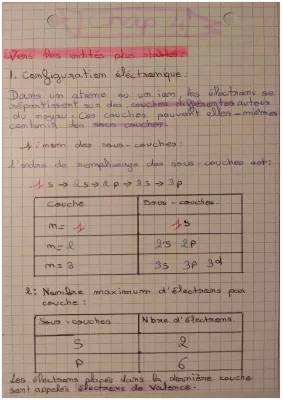 Vers des entités plus stables.
1. Configuration électronique :
Dans un atome ou un ion, les électrons se
répartissent sur des couches différentes autour
du noyau. Ces couches peuvent elles-mêmes
contenir des sous couches.
1: nom des sous-couches :
L'ordre de remplissage des sous-couches est:
1s → 2s → 2p → 3s → 3p
Couche Sous-couches
m = 1 1s
m = 2 2s 2p
m = 3 3s 3p 3d
2: Nombre maximum d'électrons par
couche :
Sous-couches Nbre d'électrons
S 2
P 6
Les électrons placés dans la dernière couche
sont appelés électrons de valence.